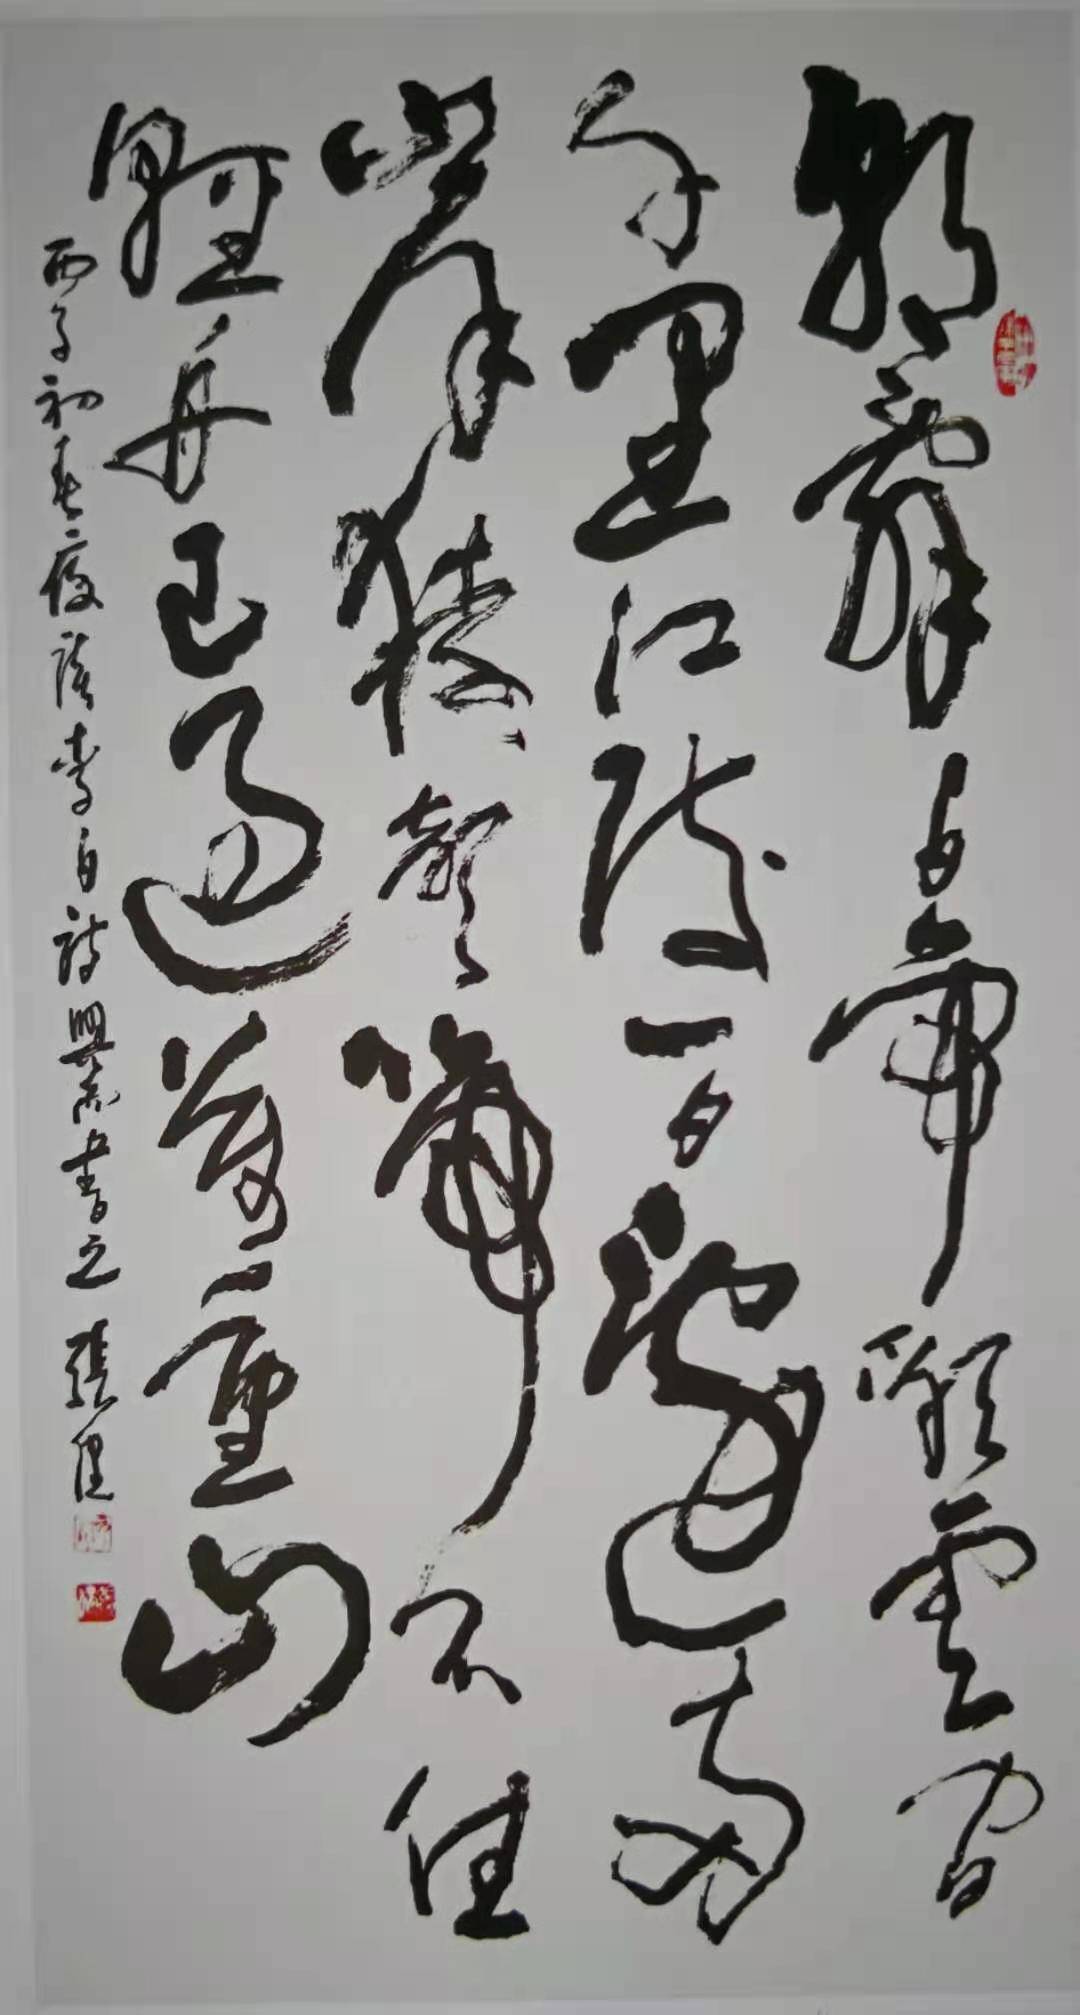 朝辭白帝彩雲間
千里江陵一日還兩
岸猿聲啼不住
輕舟已過萬重山
丙子初春夜读李白诗興来書之 張